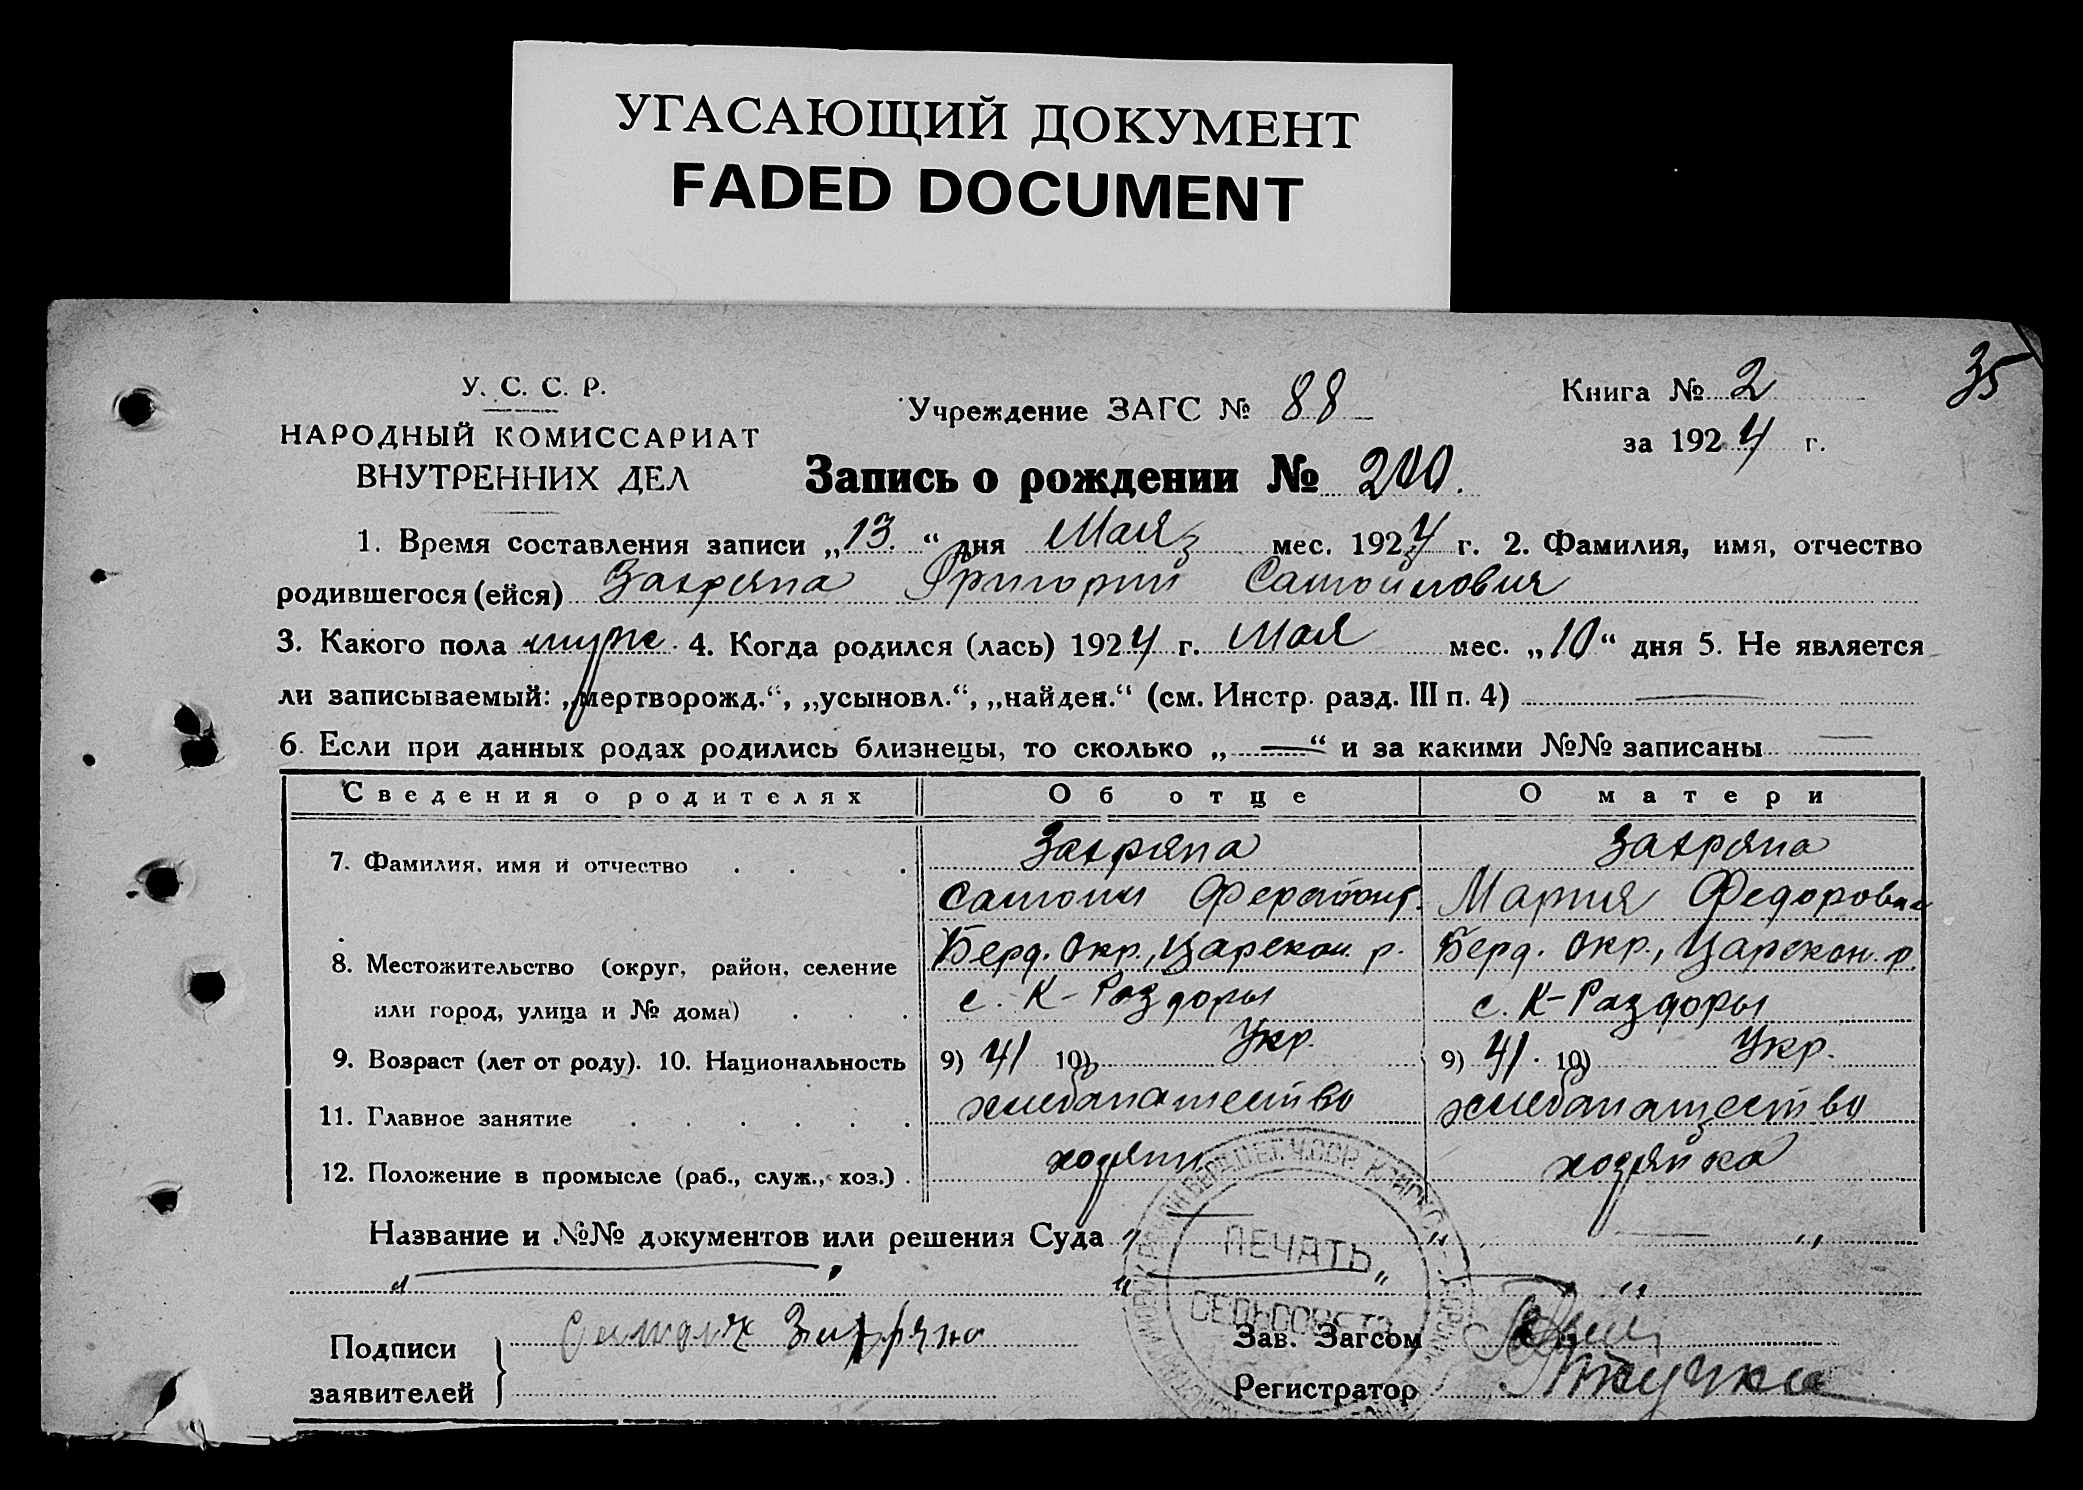 УГАСАЮЩИЙ ДОКУМЕНТ
FADED DOCUMENT
35
У. С. С. Р.
НАРОДНЫЙ КОМИССАРИАТ
ВНУТРЕННИХ ДЕЛ
Учреждение ЗАГС № 88
Книга № 2
за 1924 г.
Запись о рождении № 200.
1. Время составления записи „13.“ дня Мая мес. 1924 г. 2. Фамилия, имя, отчество
родившегося (ейся) Григорий Самойлович
3. Какого пола муж. 4. Когда родился (лась) 1924 г. Мая мес. „10“ дня 5. Не является
ли записываемый: „мертворожд.“, „усыновл.“, „найден.“ (см. Инстр. разд. III п. 4) —
6. Если при данных родах родились близнецы, то сколько „—“ и за какими №№ записаны —
Сведения о родителях Об отце О матери
7. Фамилия, имя и отчество
Мария Федоровна
8. Местожительство (округ, район, селение Берд. Окр., Царекон. р. Берд. Окр., Царекон. р.
или город, улица и № дома) с. К-Раздоры с. К-Раздоры
9. Возраст (лет от роду). 10. Национальность 9) 41 10) Укр. 9) 41. 10) Укр.
11. Главное занятие хлебопашество хлебопашество
12. Положение в промысле (раб., служ., хоз.) хозяин хозяйка
Название и №№ документов или решения Суда „ — „ — „
„ — „ „ — „ — „
ПЕЧАТЬ
СЕЛЬСОВЕТА
Подписи
заявителей
Зав. Загсом
Регистратор